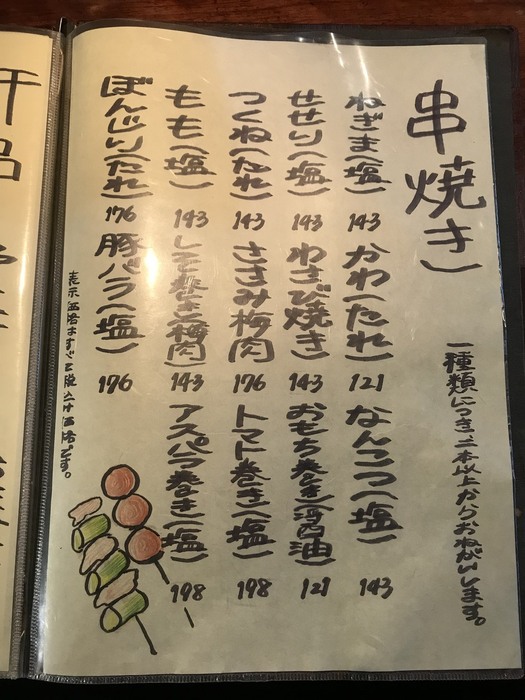 串焼き
一種類につき二本以上からおねがいします。
ねぎま(塩) 143
かわ(たれ) 121
なんこつ(塩) 143
せせり(塩) 143
わさび焼き 143
おもち巻き(醤油) 121
つくね(たれ) 143
ささみ梅肉 176
トマト巻き(塩) 198
もも(塩) 143
しそ巻き(梅肉) 143
アスパラ巻き(塩) 198
ぼんじり(たれ) 176
豚バラ(塩) 176
表示価格はすべて税込み価格です。